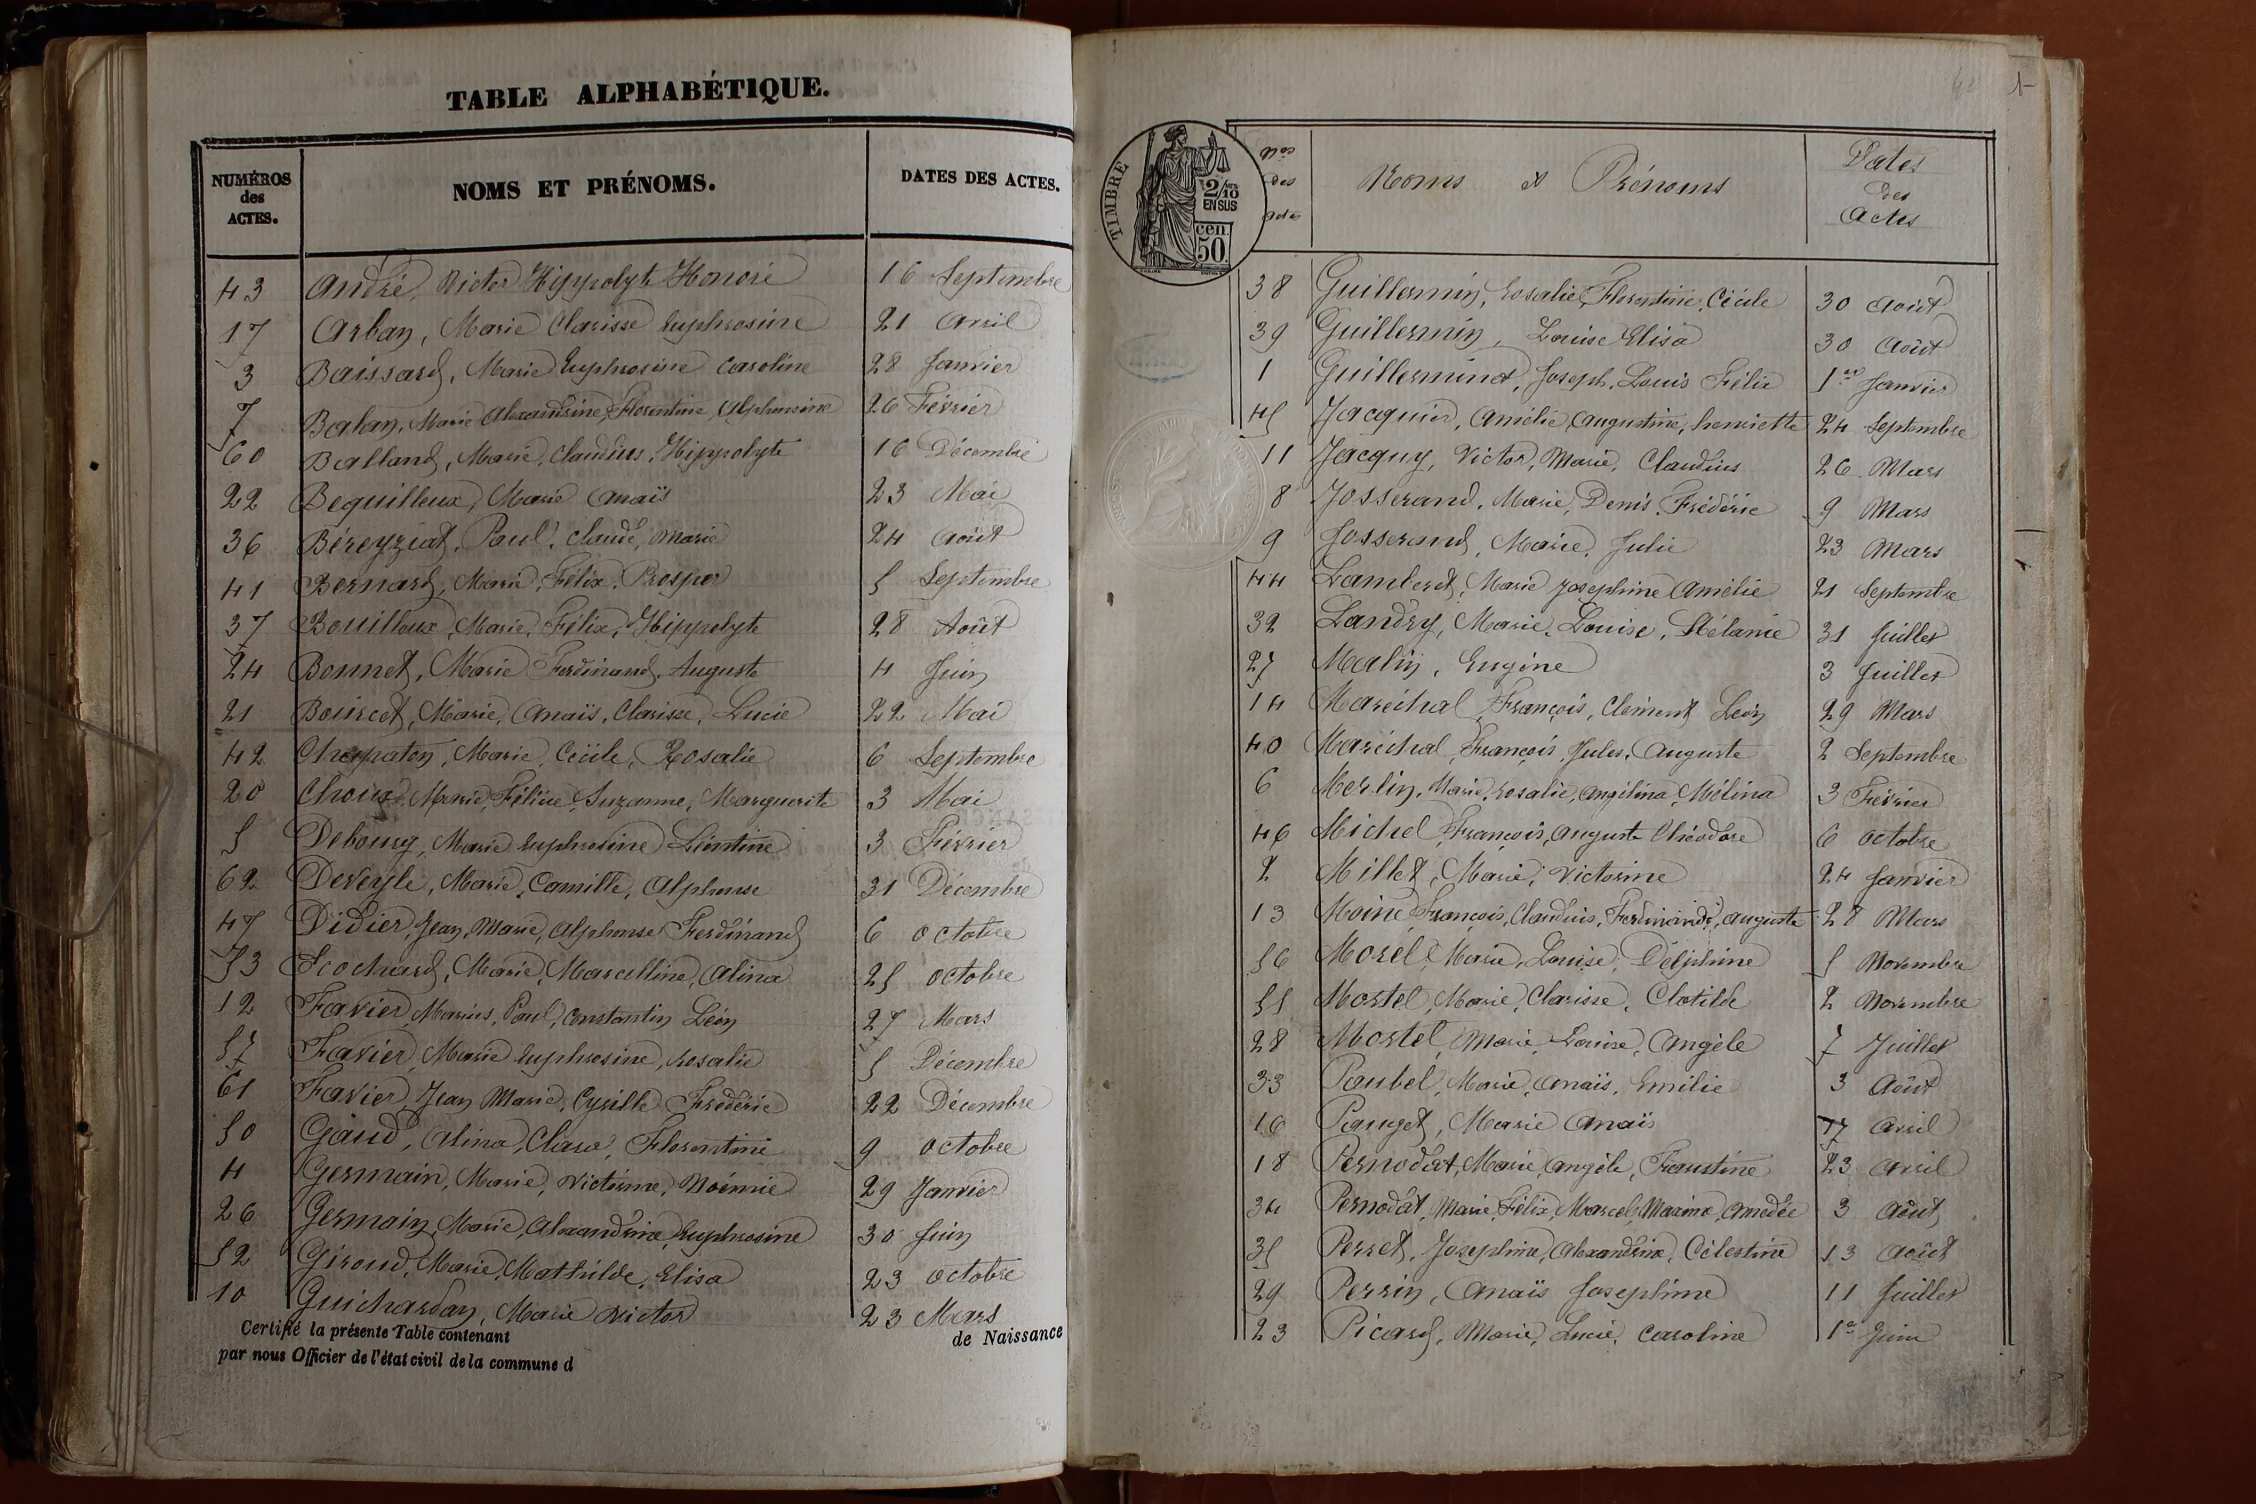 TABLE ALPHABÉTIQUE.
NUMÉROS des ACTES. NOMS ET PRÉNOMS. DATES DES ACTES.
43 André, Victor Hippolyte Honoré 16 Septembre
17 Arban, Marie Clarisse Euphrosine 21 Avril
3 Baissard, Marie Euphrosine Caroline 28 Janvier
7 Balan, Marie Alexandrine, Florentine, Alphonsine 26 Février
60 Balland, Marie, Claudius, Hippolyte 16 Décembre
22 Bequilleux, Marie Anaïs 23 Mai
36 Béreyziat, Paul, Claude, Marie 24 Août
41 Bernard, Marie, Félix, Prosper 5 Septembre
37 Bouilloux, Marie, Félix, Hippolyte 28 Août
24 Bonnet, Marie Ferdinand, Auguste 4 Juin
21 Bourcet, Marie, Anaïs, Clarisse, Lucie 22 Mai
42 Chapaton, Marie, Cécile, Rosalie 6 Septembre
20 Choux, Marie, Félicie, Suzanne, Marguerite 3 Mai
5 Debourg, Marie Euphrosine Léontine 3 Février
62 Deveyle, Marie, Camille, Alphonse 31 Décembre
47 Didier, Jean, Marie, Alphonse Ferdinand 6 Octobre
53 Ecochard, Marie, Marcelline, Alina 25 Octobre
12 Favier, Marius, Paul, Constantin Léon 27 Mars
57 Favier, Marie Euphrosine, Rosalie 5 Décembre
61 Favier, Jean Marie, Cyrille Frédéric 22 Décembre
50 Gaud, Alina, Clara, Florentine 9 Octobre
4 Germain, Marie, Victorine, Noémie 29 Janvier
26 Germain, Marie, Alexandrine, Euphrosine 30 Juin
52 Giroud, Marie, Mathilde, Elisa 23 Octobre
10 Guichardan, Marie Victor 23 Mars
Certifié la présente Table contenant de Naissance
par nous Officier de l'état civil de la commune d
1
TIMBRE
2/10 EN SUS
cen. 50
Nos des Actes Noms et Prénoms Dates des Actes
38 Guillermin, Rosalie, Florentine, Cécile 30 Août
39 Guillermin, Louise Elisa 30 Août
1 Guillerminet, Joseph, Louis Félix 1er Janvier
45 Jacquier, Amélie, Augustine, henriette 24 Septembre
11 Jacquy, Victor, Marie, Claudius 26 Mars
8 Josserand, Marie, Denis, Frédéric 9 Mars
9 Josserand, Marie, Julie 23 Mars
44 Lamberet, Marie Josephine Amélie 21 Septembre
32 Landry, Marie, Louise, Stélanie 31 Juillet
27 Malin, Eugène 3 Juillet
14 Maréchal, François, Clément Léon 29 Mars
40 Maréchal, François, Jules, Auguste 2 Septembre
6 Merlin, Marie, Rosalie, Angélina, Mélina 3 Février
46 Michel, François, Auguste Théodore 6 Octobre
2 Millet, Marie, Victorine 24 Janvier
13 Moine, François, Claudius, Ferdinand, Auguste 28 Mars
56 Morel, Marie, Louise, Délphine 5 Novembre
55 Mortel, Marie, Clarisse, Clotilde 2 Novembre
28 Mortel, Marie, Louise, Angèle 7 Juillet
33 Paubel, Marie, Anaïs, Emilie 3 Août
16 Pauget, Marie Anaïs 17 Avril
18 Pernodat, Marie, Angèle, Faustine 23 Avril
34 Pernodat, Marie, Félix, Marcel, Maxime, Amédée 3 Août
35 Perret, Joséphine, Alexandrine, Célestine 13 Août
29 Perrin, Anaïs Joséphine 11 Juillet
23 Picard, Marie, Lucie, Caroline 1er Juin